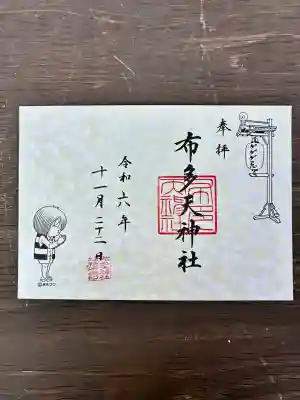 奉拝
布多天神社
令和六年
十一月二十二日
©水木プロ